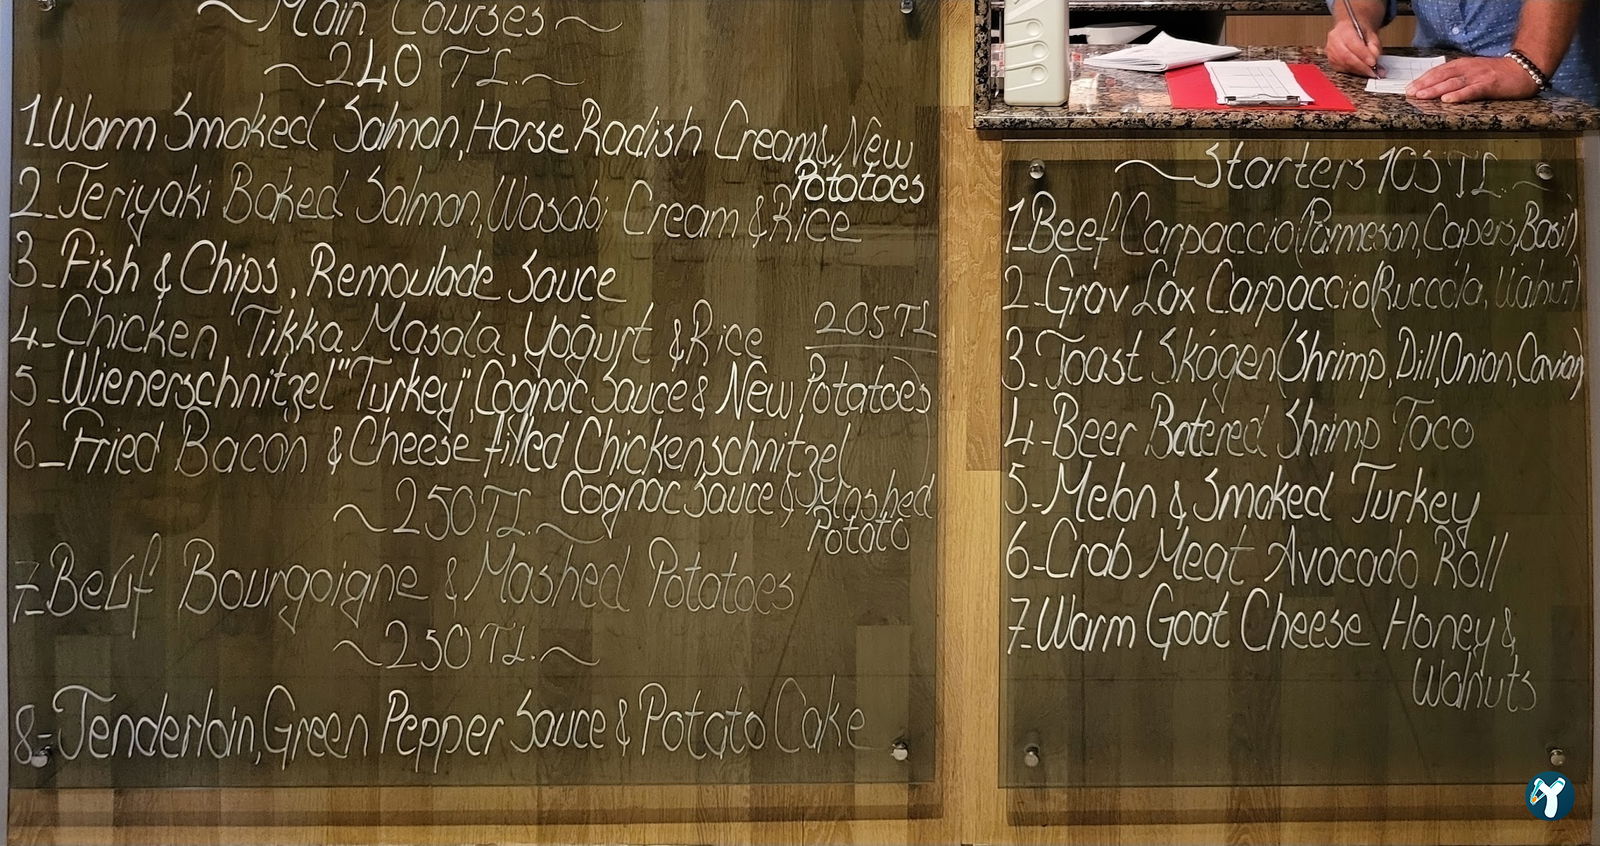 ~Main Courses~
~240 TL.~
1_Warm Smoked Salmon, Horse Radish Cream & New Potatoes
2_Teriyaki Baked Salmon, Wasabi Cream & Rice
3_Fish & Chips, Remoulade Sauce
4_Chicken Tikka Masala, Yoğurt & Rice
205TL
5_Wienerschnitzel "Turkey", Cognac Sauce & New Potatoes
6_Fried Bacon & Cheese filled Chickenschnitzel
Cognac Sauce & Mashed
Potato
~250TL.~
7_Beuf Bourgoigne & Mashed Potatoes
~250TL.~
8-Tenderloin, Green Pepper Sauce & Potato Cake
~Starters 105 TL.~
1_Beef Carpaccio (Parmesan, Capers, Basil)
2_Grav Lax Carpaccio (Ruccola, Walnut)
3_Toast Skógen (Shrimp, Dill, Onion, Caviar)
4-Beer Batered Shrimp Taco
5-Melon & Smoked Turkey
6_Crab Meat Avocado Roll
7_Warm Goat Cheese Honey &
Walnuts